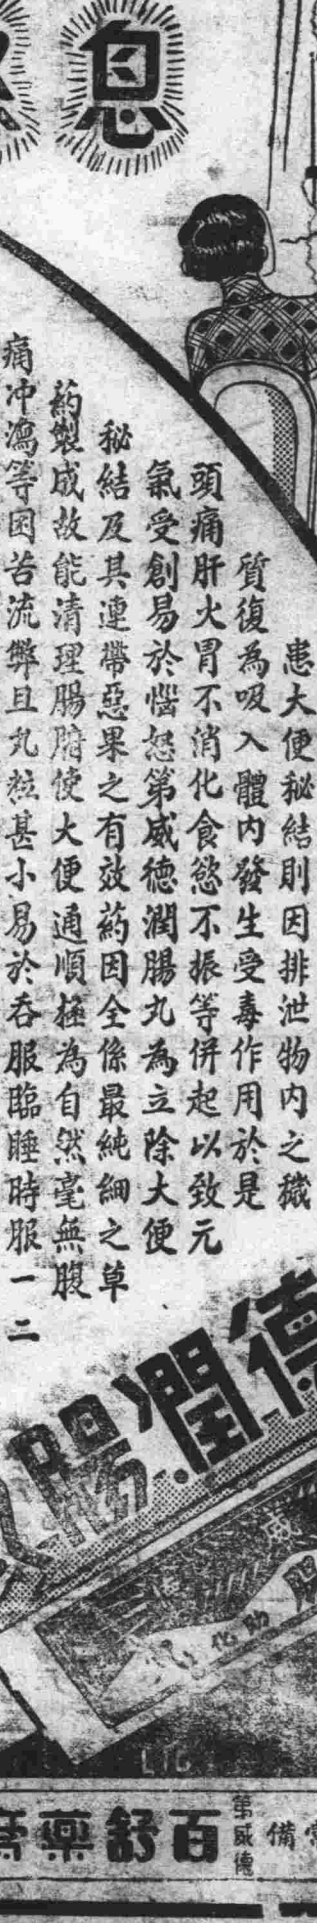 息
患大便秘結則因排泄物内之穢
質復為吸入體内發生受毒作用於是
頭痛肝火胃不消化食慾不振等併起以致元
氣受創易於惱怒第威德潤腸丸為立除大便
秘結及其連帶惡果之有效葯因全係最純細之草
葯製成故能清理腸腑使大便通順極為自然毫無腹
痛冲瀉等困苦流弊且丸粒甚小易於吞服臨睡時服一二
德潤腸
威
助化
備
第威德
百舒藥膏